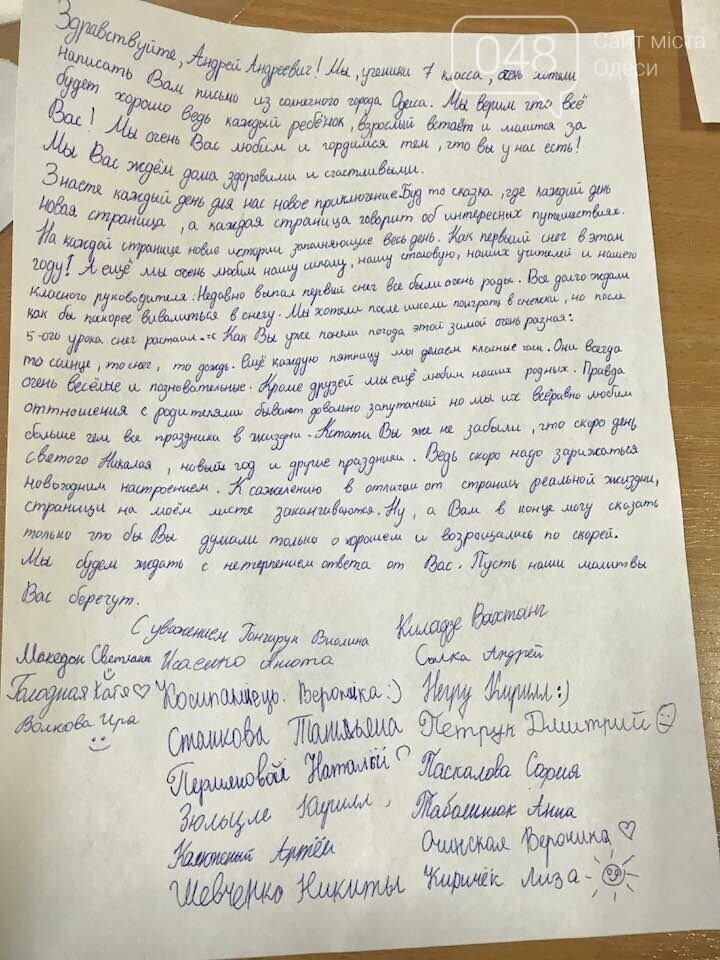 048
Сайт міста
Одеси
Здравствуйте, Андрей Андреевич! Мы, ученики 7 класса, очень хотели
написать Вам письмо из солнечного города Одесса. Мы верим что всё
будет хорошо ведь каждый ребёнок, взрослый встаёт и молится за
Вас! Мы очень Вас любим и гордимся тем, что вы у нас есть!
Мы Вас ждём дома здоровыми и счастливыми.
Знаете каждый день для нас новое приключение. Буд то сказка, где каждый день
новая страница, а каждая страница говорит об интересных путешествиях.
На каждой странице новые истории заполняющие весь день. Как первый снег в этом
году! А ещё мы очень любим нашу школу, нашу столовую, наших учителей и нашего
класного руководителя. Недавно выпал первый снег все были очень рады. Все долго ждали
как бы поскорее вываляться в снегу. Мы хотели после школы поиграть в снежки, но после
5-ого урока снег растаял. Как Вы уже поняли погода этой зимой очень разная:
то солнце, то снег, то дождь. Ещё каждую пятницу мы делаем класные часы. Они всегда
очень весёлые и познавательные. Кроме друзей мы ещё любим наших родных. Правда
оттношения с родителями бывают довально запутаный но мы их всёравно любим
больше чем все праздники в жизни. Кстати Вы же не забыли, что скоро день
святого Николая, новый год и другие праздники. Ведь скоро надо заряжаться
новогодним настроением. К сажелению в отличаи от страниц реальной жизни,
страници на моём листе заканчиваются. Ну, а Вам в конце могу сказать
только что бы Вы думали только о хорошем и возрощались по скорей.
Мы будем ждать с нетерпением ответа от Вас. Пусть наши молитвы
Вас берегут.
С уважением Гончарук Виолина
Киладзе Вахтанг
Македон Светлана
Исаенко Анюта
Салка Андрей
Голодная Катя
Косипанлець Вероника :)
Негру Кирилл :)
Волкова Ира
Станкова Татьяна
Петрук Дмитрий
Пермяковой Натальи
Паскалова София
Кирилл
Анна
Артём
Очинская Вероника
Шевченко Никиты
Киричек Лиза